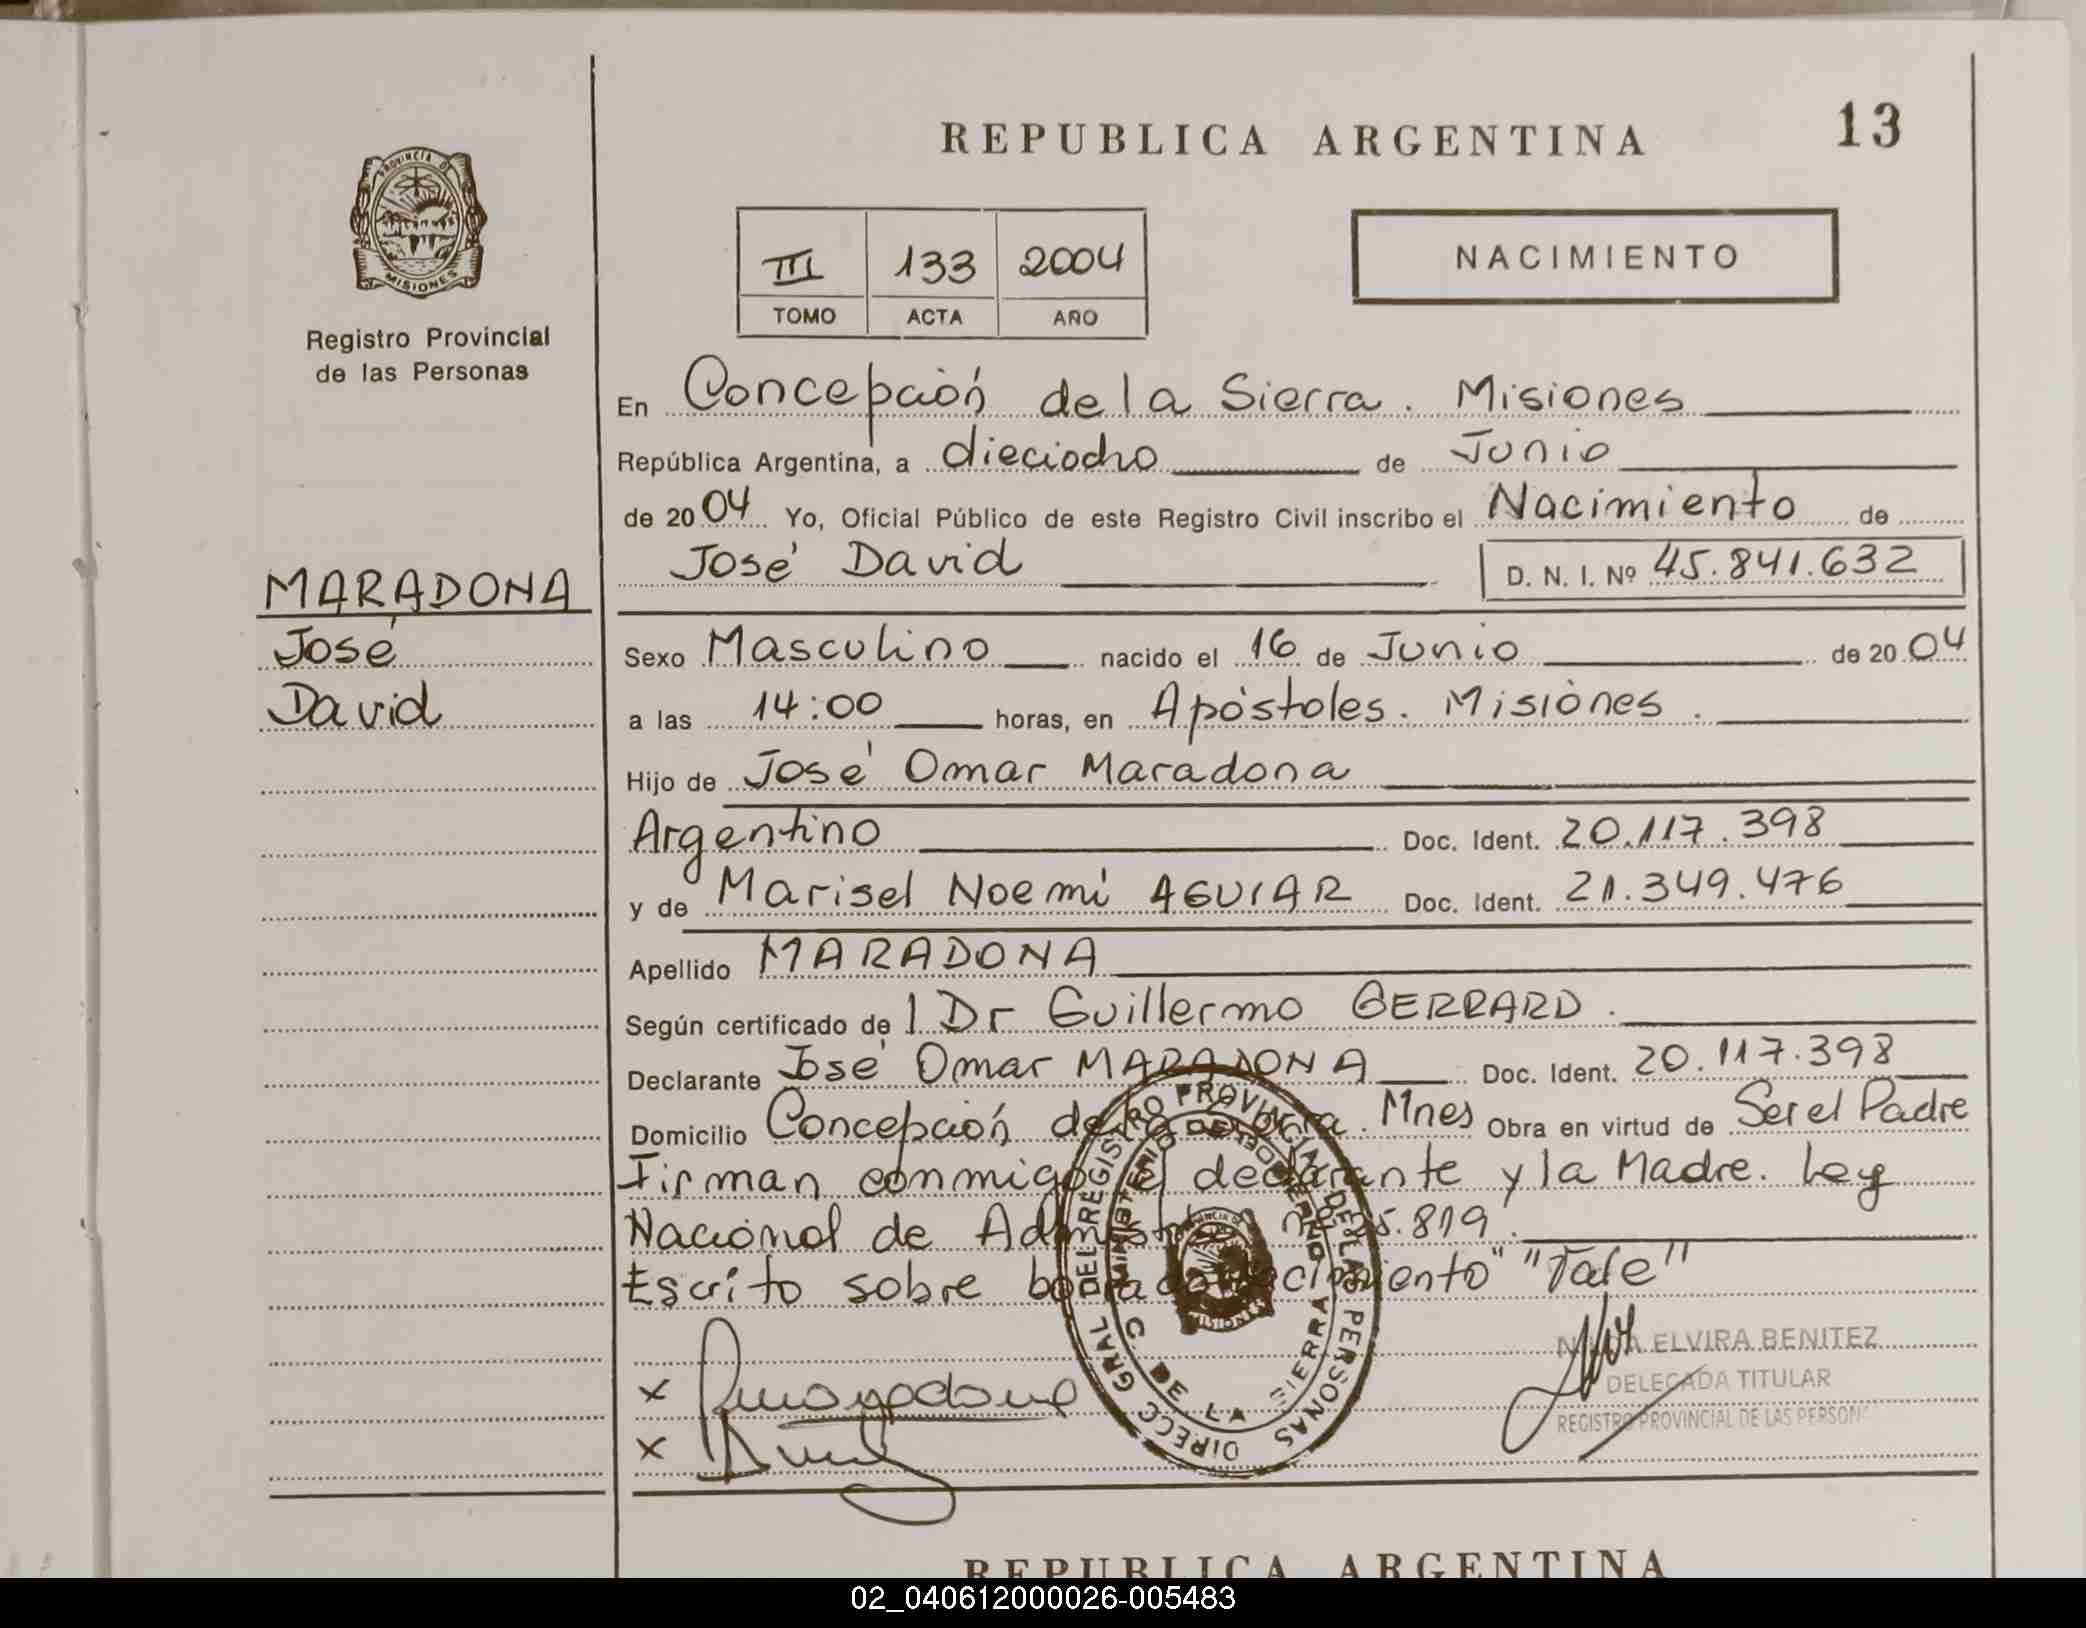 REPUBLICA ARGENTINA
13
PROVINCIA DE
MISIONES
Registro Provincial
de las Personas
III 133 2004
TOMO ACTA AÑO
NACIMIENTO
En Concepción de la Sierra. Misiones
República Argentina, a dieciocho de Junio
de 2004 Yo, Oficial Público de este Registro Civil inscribo el Nacimiento de
José David D. N. I. Nº 45.841.632
MARADONA
José
David
Sexo Masculino nacido el 16 de Junio de 2004
a las 14:00 horas, en Apóstoles. Misiones.
Hijo de José Omar Maradona
Argentino Doc. Ident. 20.117.398
y de Marisel Noemi AGUIAR Doc. Ident. 21.349.476
Apellido MARADONA
Según certificado de l Dr Guillermo GERRARD.
Declarante José Omar MARADONA Doc. Ident. 20.117.398
Domicilio Concepción de la Sierra. Mnes Obra en virtud de Ser el Padre
Firman conmigo el declarante y la Madre. Ley
Nacional de 25.819.
Escrito sobre "Vale"
DIRECC GRAL DEL REGISTRO PROVINCIAL DE LAS PERSONAS
MINISTERIO DE GOBIERNO
C. DE LA SIERRA
MISIONES
ELVIRA BENITEZ
DELEGADA TITULAR
REGISTRO PROVINCIAL DE LAS PERSON
x
x
REPUBLICA ARGENTINA
02_040612000026-005483